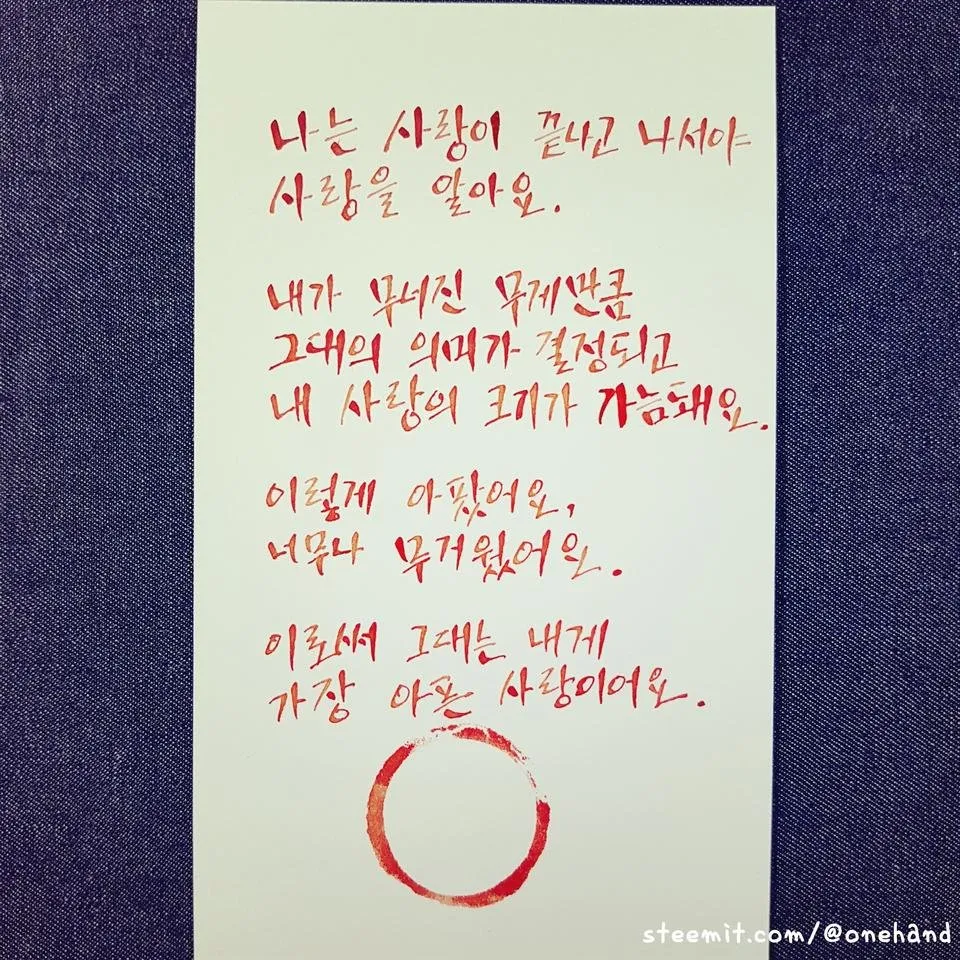 나는 사랑이 끝나고 나서야
사랑을 알아요.
내가 무너진 무게만큼
그대의 의미가 결정되고
내 사랑의 크기가 가늠돼요.
이렇게 아팠어요,
너무나 무거웠어요.
이로써 그대는 내게
가장 아픈 사랑이어요.
steemit.com/@onehand